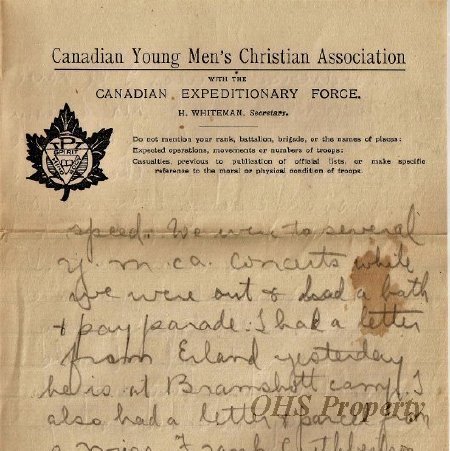 Canadian Young Men's Christian Association
WITH THE
CANADIAN EXPEDITIONARY FORCE.
H. WHITEMAN, Secretary.
Do not mention your rank, battalion, brigade, or the names of places:
Expected operations, movements or numbers of troops:
Casualties, previous to publication of official lists, or make specific
reference to the moral or physical condition of troops.
SPIRIT
speed. We went to several
Y.M.C.A. concerts while
we were out & had a bath
& pay parade. I had a letter
from Erland yesterday
he is at Bramshott camp. I
also had a letter & parcel from
OHS Property
Frank